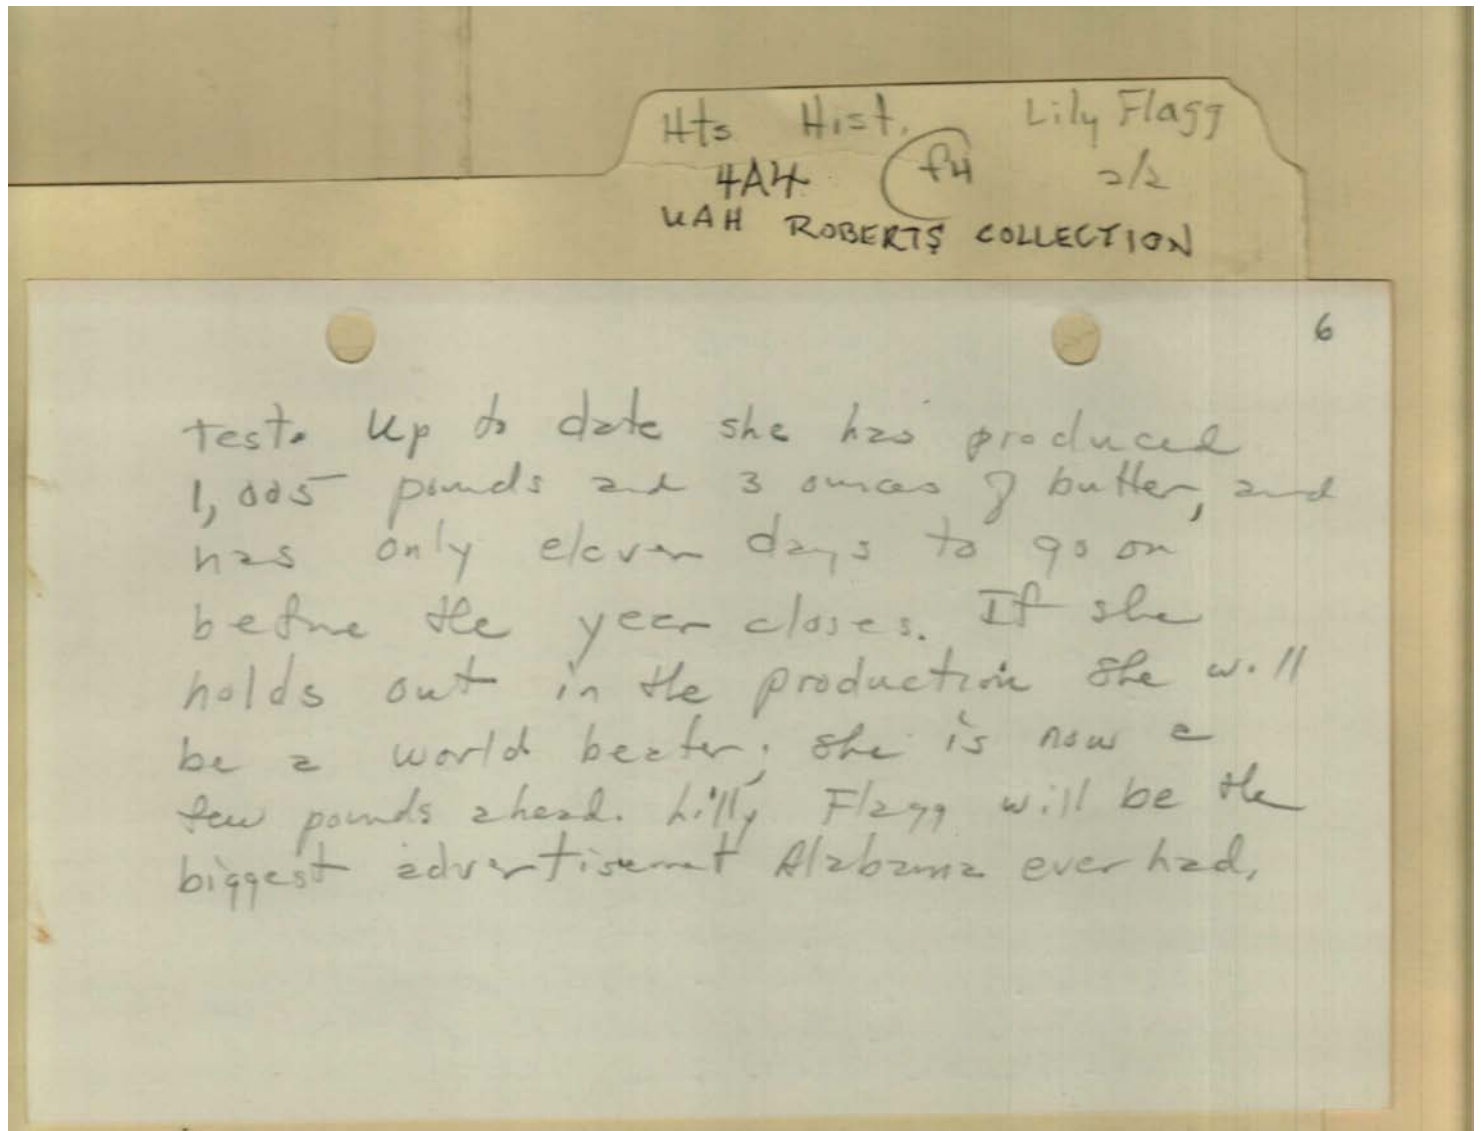 Hts Hist. Lily Flagg
4A4 f4 2/2
UAH ROBERTS COLLECTION
6
Test. Up to date she has produced
1,005 pounds and 3 ounces of butter, and
has only eleven days to go on
before the year closes. If she
holds out in the production she will
be a world beater; she is now a
few pounds ahead. Lilly Flagg will be the
biggest advertisement Alabama ever had.